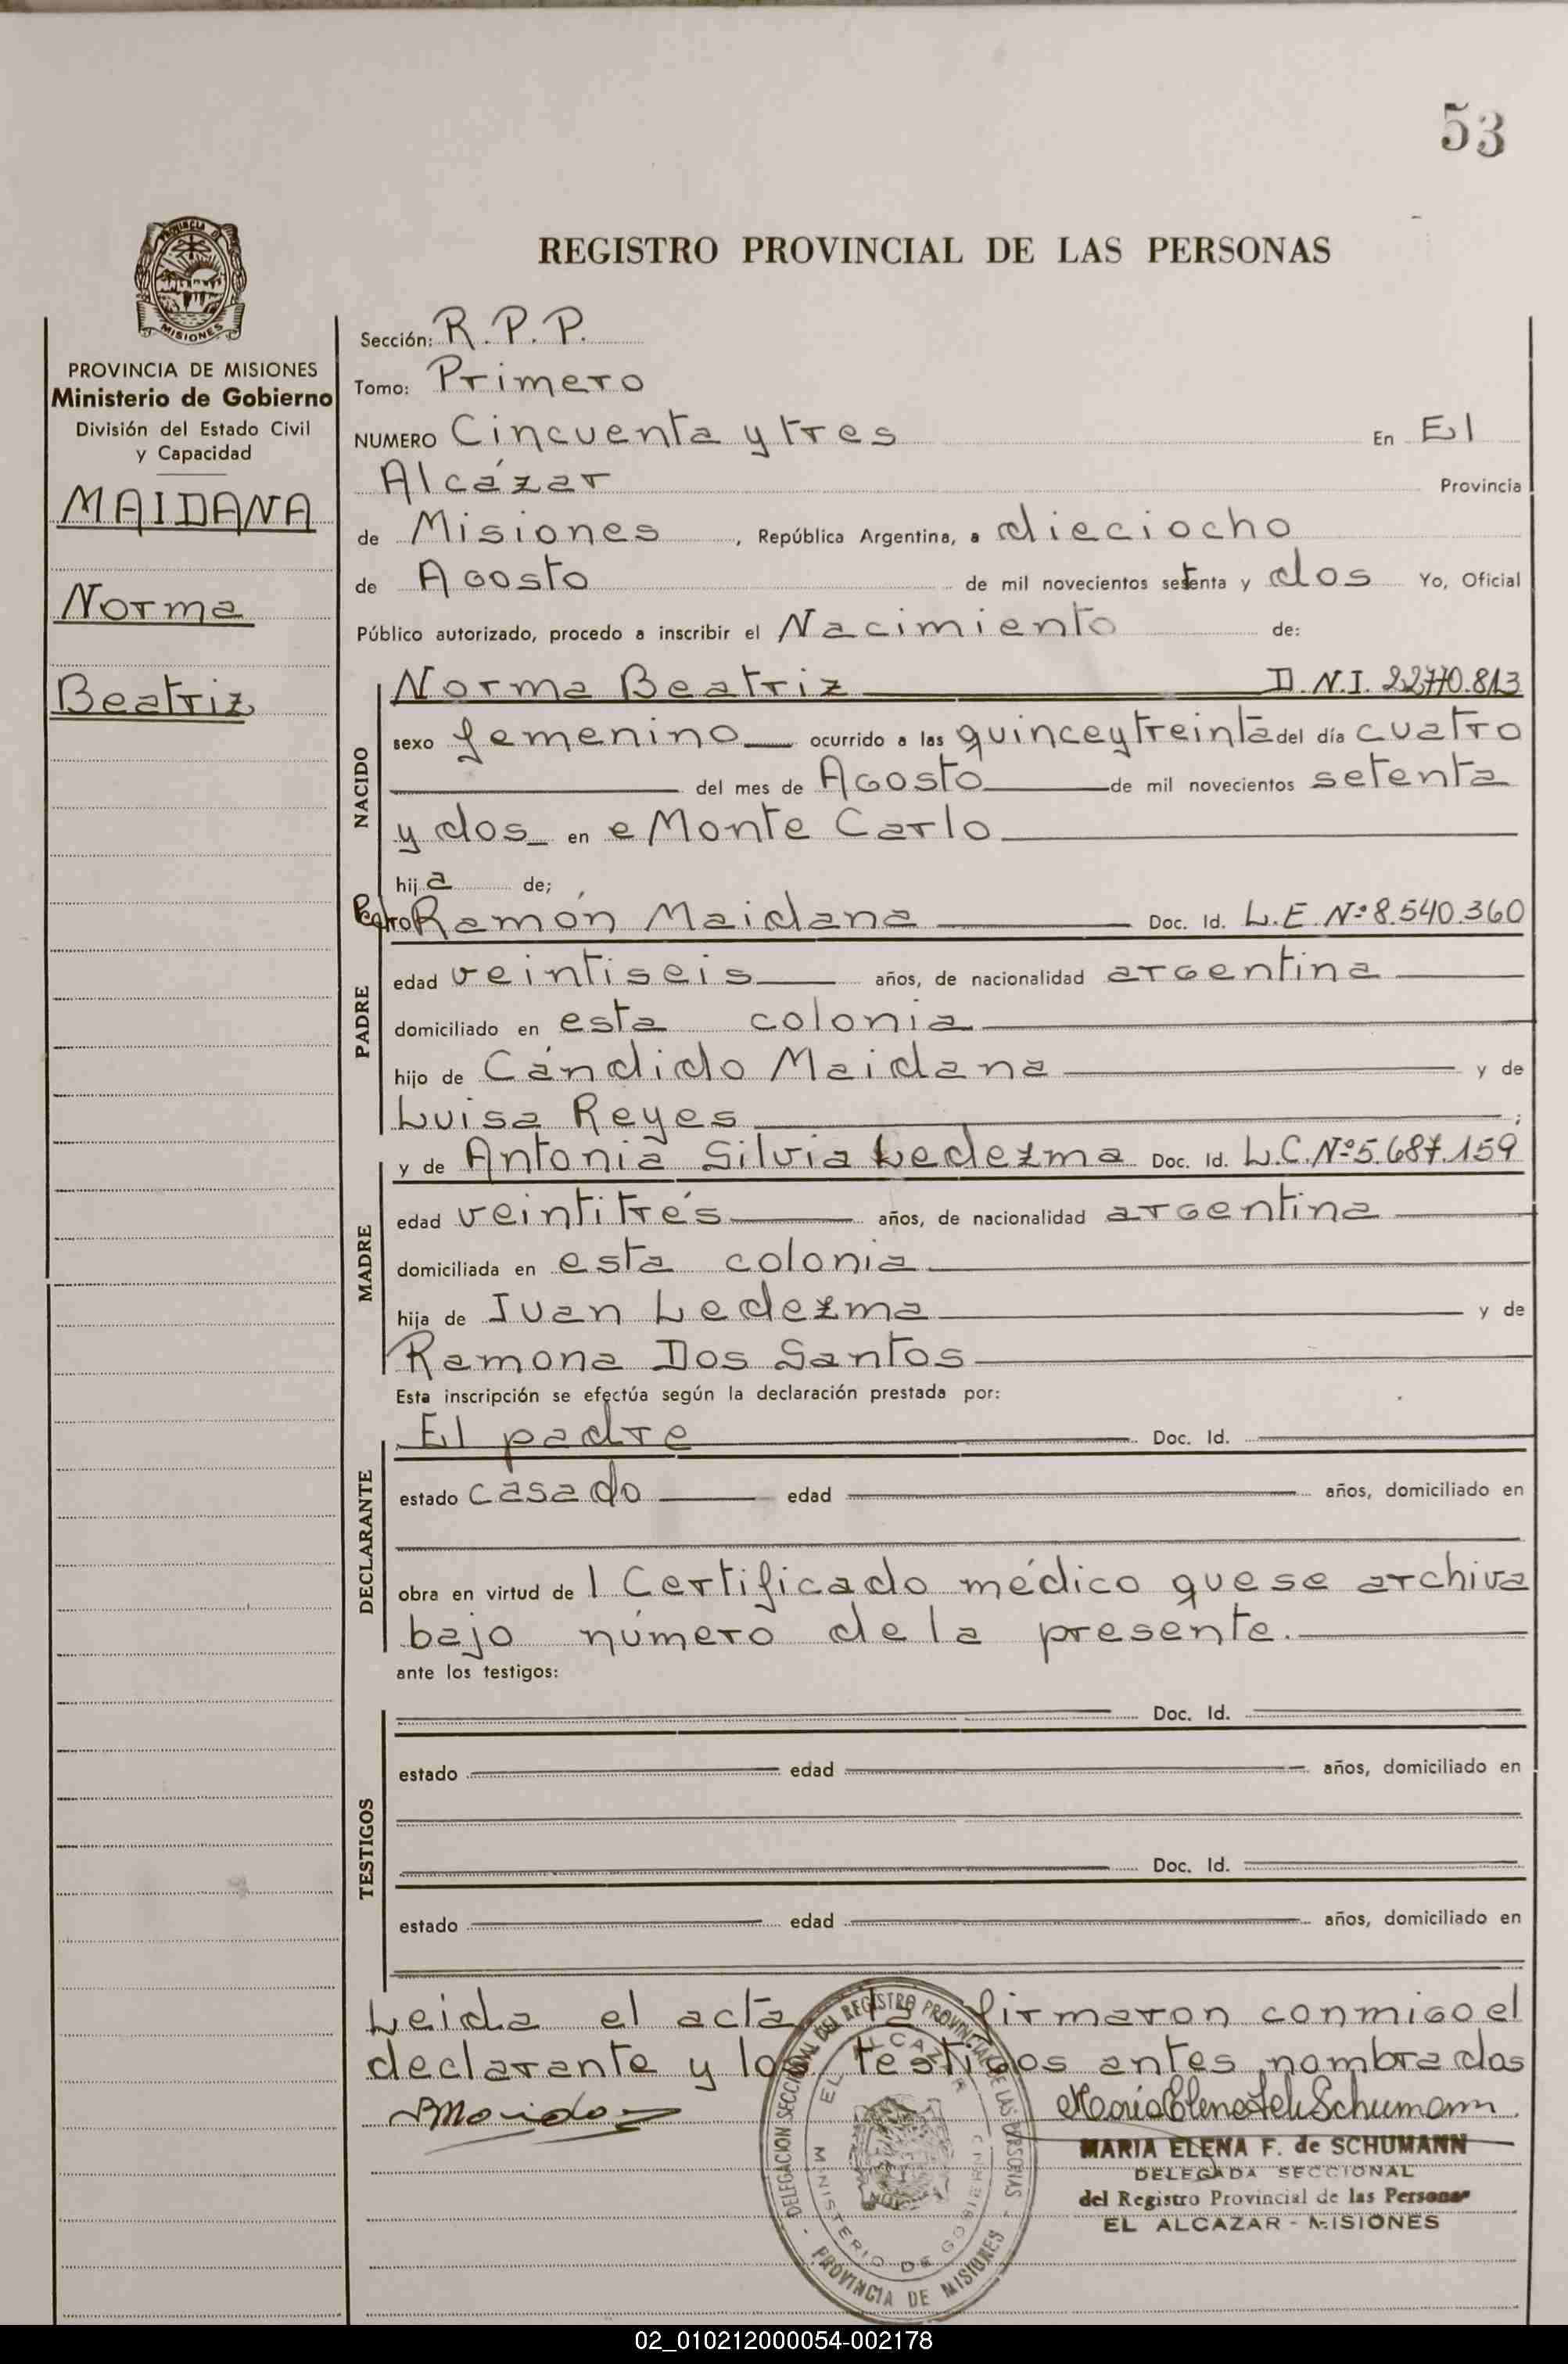 53
REGISTRO PROVINCIAL DE LAS PERSONAS
PROVINCIA DE
MISIONES
PROVINCIA DE MISIONES
Ministerio de Gobierno
División del Estado Civil
y Capacidad
MAIDANA
Norma
Beatriz
Sección: R.P.P.
Tomo: Primero
NUMERO Cincuenta y tres En El
Alcázar Provincia
de Misiones, República Argentina, a dieciocho
de Agosto de mil novecientos setenta y dos Yo, Oficial
Público autorizado, procedo a inscribir el Nacimiento de:
NACIDO
Norma Beatriz D.N.I. 22.770.813
sexo femenino ocurrido a las quince y treinta del día cuatro
del mes de Agosto de mil novecientos setenta
y dos en e Monte Carlo
hija de;
PADRE
Pedro Ramón Maidana Doc. Id. L.E. Nº 8.540.360
edad veintiseis años, de nacionalidad argentina
domiciliado en esta colonia
hijo de Cándido Maidana y de
Luisa Reyes ;
MADRE
y de Antonia Silvia Ledezma Doc. Id. L.C. Nº 5.687.159
edad veintitrés años, de nacionalidad argentina
domiciliada en esta colonia
hija de Juan Ledezma y de
Ramona Dos Santos
Esta inscripción se efectúa según la declaración prestada por:
DECLARANTE
El padre Doc. Id.
estado casado edad años, domiciliado en
obra en virtud de 1 Certificado médico que se archiva
bajo número de la presente.
ante los testigos:
TESTIGOS
Doc. Id.
estado edad años, domiciliado en
Doc. Id.
estado edad años, domiciliado en
Leida el acta la firmaron conmigo el
declarante y los testigos antes nombrados
DELEGACION SECCIONAL DEL REGISTRO PROVINCIAL DE LAS PERSONAS
EL ALCAZAR
MINISTERIO DE GOBIERNO
PROVINCIA DE MISIONES
MARIA ELENA F. de SCHUMANN
DELEGADA SECCIONAL
del Registro Provincial de las Personas
EL ALCAZAR - MISIONES
02_010212000054-002178